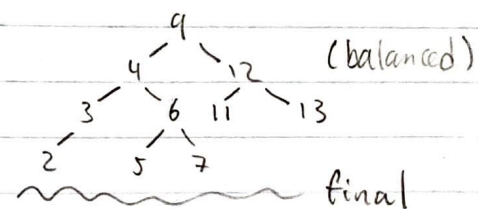 9
4 12 (balanced)
3 6 11 13
2 5 7
final